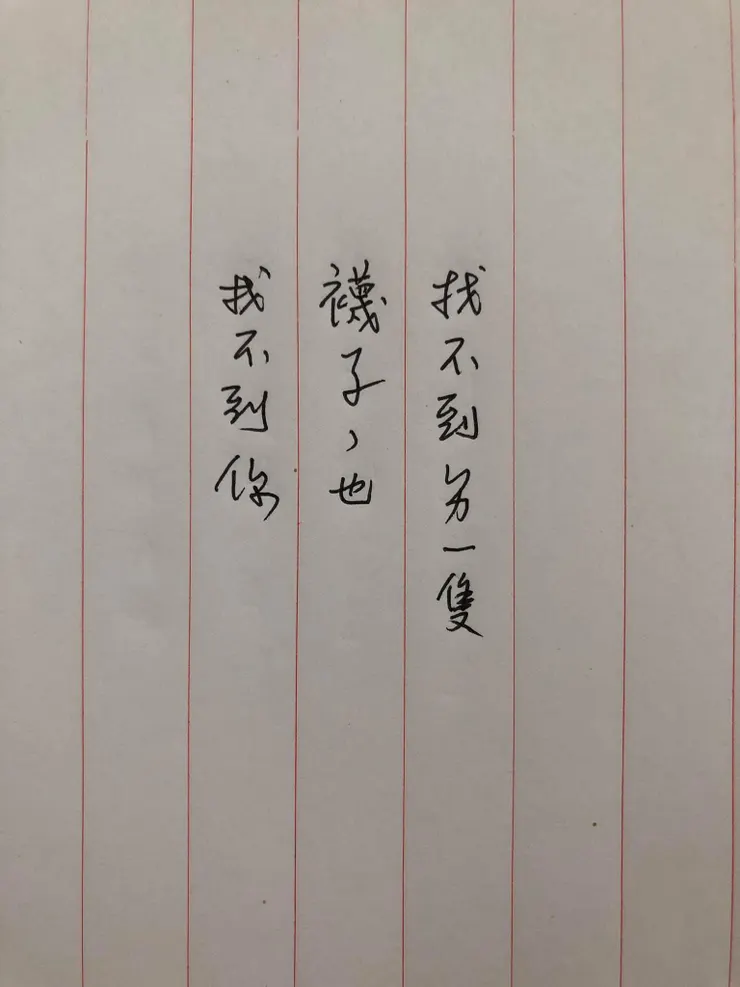 找不到另一隻
襪子，也
找不到你